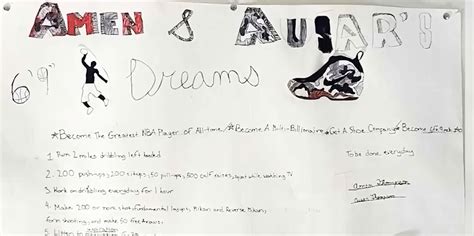 AMEN & AUSAR'S
6'9" Dreams
★Become The Greatest NBA Player of All-time ★Become A Multi-Billionaire ★Get A Shoe Company ★Become
1. Run 2 miles dribbling left handed
To be done everyday
2. 200 pushups, 200 situps, 50 pullups, 500 calf raises, squat while watching TV
3. Work on dribbling everyday for 1 hour
4. Make 200 or more shots, fundamental layups, Mikan and Reverse Mikans,
form shooting, and make 50 free throws
5. Listen to